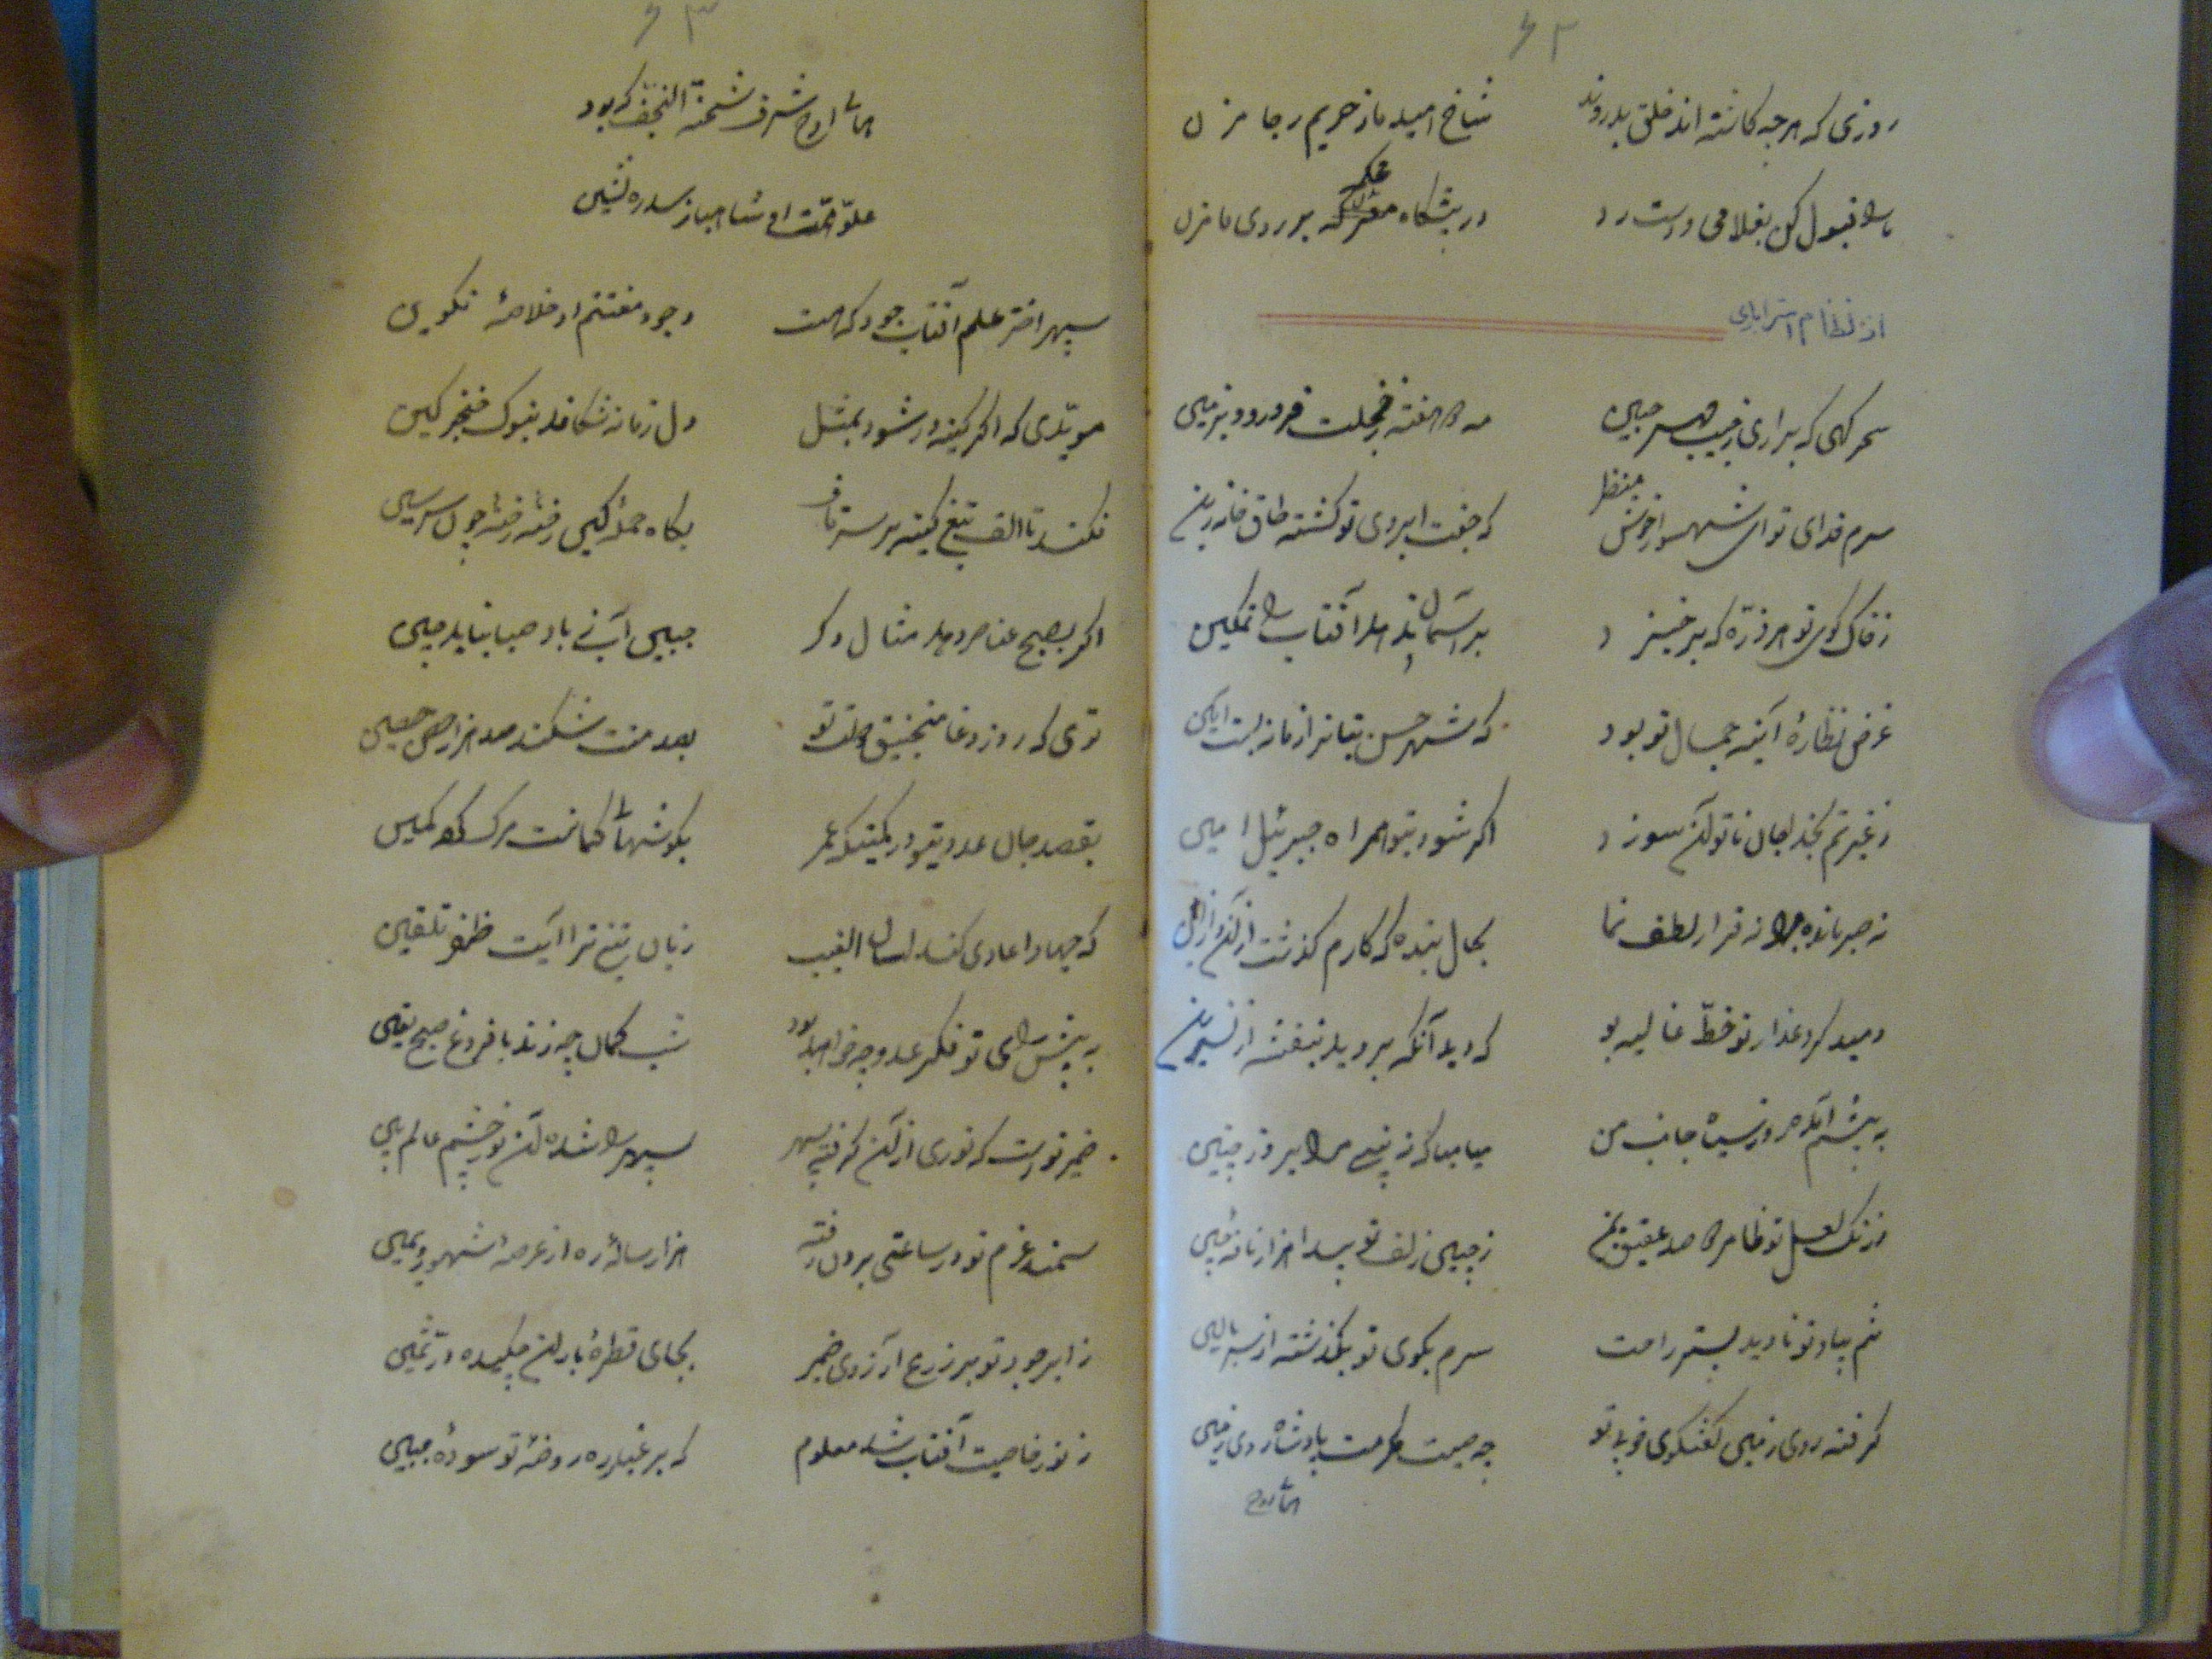 ۶۲
روزی که هرچه کاشته اند خلق بدروند شاخ امید ما ز حریم رجا مزن
ما را قبول کن بغلامی و دست رد در پیشگاه بر روی ما مزن
از نظام استرابادی
سحرگهی که براری ز جیب مهر جبین مه دو هفته ز خجلت فرو رود بزمین
سرم فدای تو ای شهسوار خوش منظر که جفت ابروی تو گشته طاق خانه زین
ز خاک کوی تو هر ذره که برخیزد بر آسمان ندهد آفتاب را تمکین
غرض نظارهٔ آینه جمال تو بود که شهر حسن بتان را زمانه بست آیین
ز غیرتم بخدا جان ناتوان سوزد اگر شود بتو همراه جبرئیل امین
نه صبر مانده مرا نه قرار لطف نما بحال بنده که کارم گذشت از آن و از این
دمید گرد عذار تو خط غالیه بو که دید آنکه بروید بنفشه از نسرین
به پیشم آمد مرو زسیاه جانب من میا میا که نه بینی مرا بروز چنین
ز رنگ لعل تو ظاهر دو صد عقیق یمن ز چین زلف تو پیدا هزار نافه چین
تنم بیاد تو نادید بستر راحت سرم بکوی تو بگذشته از سر بالین
گرفته روی زمین گفتگوی خوبی تو چو صیت مکرمت پادشاه روی زمین
همای اوج
۶۳
همای اوج شرف شحنة النجف که بود
علو همت او شاهباز سدره نشین
سپهر اختر علم آفتاب جود که هست وجود مغتنم او خلاصهٔ تکوین
مؤیدی که اگر کینه ور شود بمثل دل زمانه شکافد بنوک خنجر کین
فکند تا الف تیغ کینه بر سر قاف بگاه حمله کین رخنه رخنه چون سر سین
اگر بصبح عناصر دهد مثال دگر جبین آب ز باد صبا نیابد چین
توی که روز دغا منجنیق صولت تو بصدمت شکند صد هزار حصن حصین
بقصد جان عدویت بود در کمینگه عمر بگوشهای کمانت مرگ کرده کمین
که جهاد اعادی کند لسان الغیب زبان تیغ ترا آیت ظفر تلقین
به پیش رای تو فکر عدو چه خواهد بود شب گمان چه زند با فروغ صبح یقین
ضمیر تو است که نوری از آن گرفته سپهر سپهر را شده آن نور چشم عالم بین
سمند عزم تو در ساعتی برون رفته هزار ساله ره از عرصهٔ شهور و سنین
ز ابر جود تو بر مزرع آرزوی ضمیر بجای قطرهٔ باران چکیده در ثمین
ز نور خاصیت آفتاب شد معلوم که بر غبار ره روضهٔ تو سوده جبین